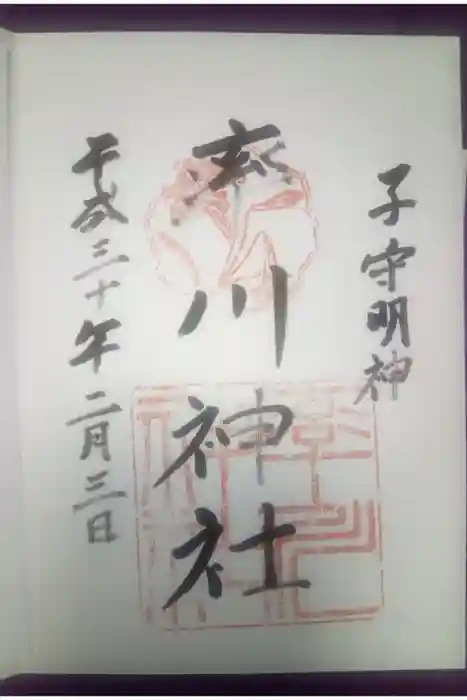 子守明神
率川神社
平成三十年二月三日